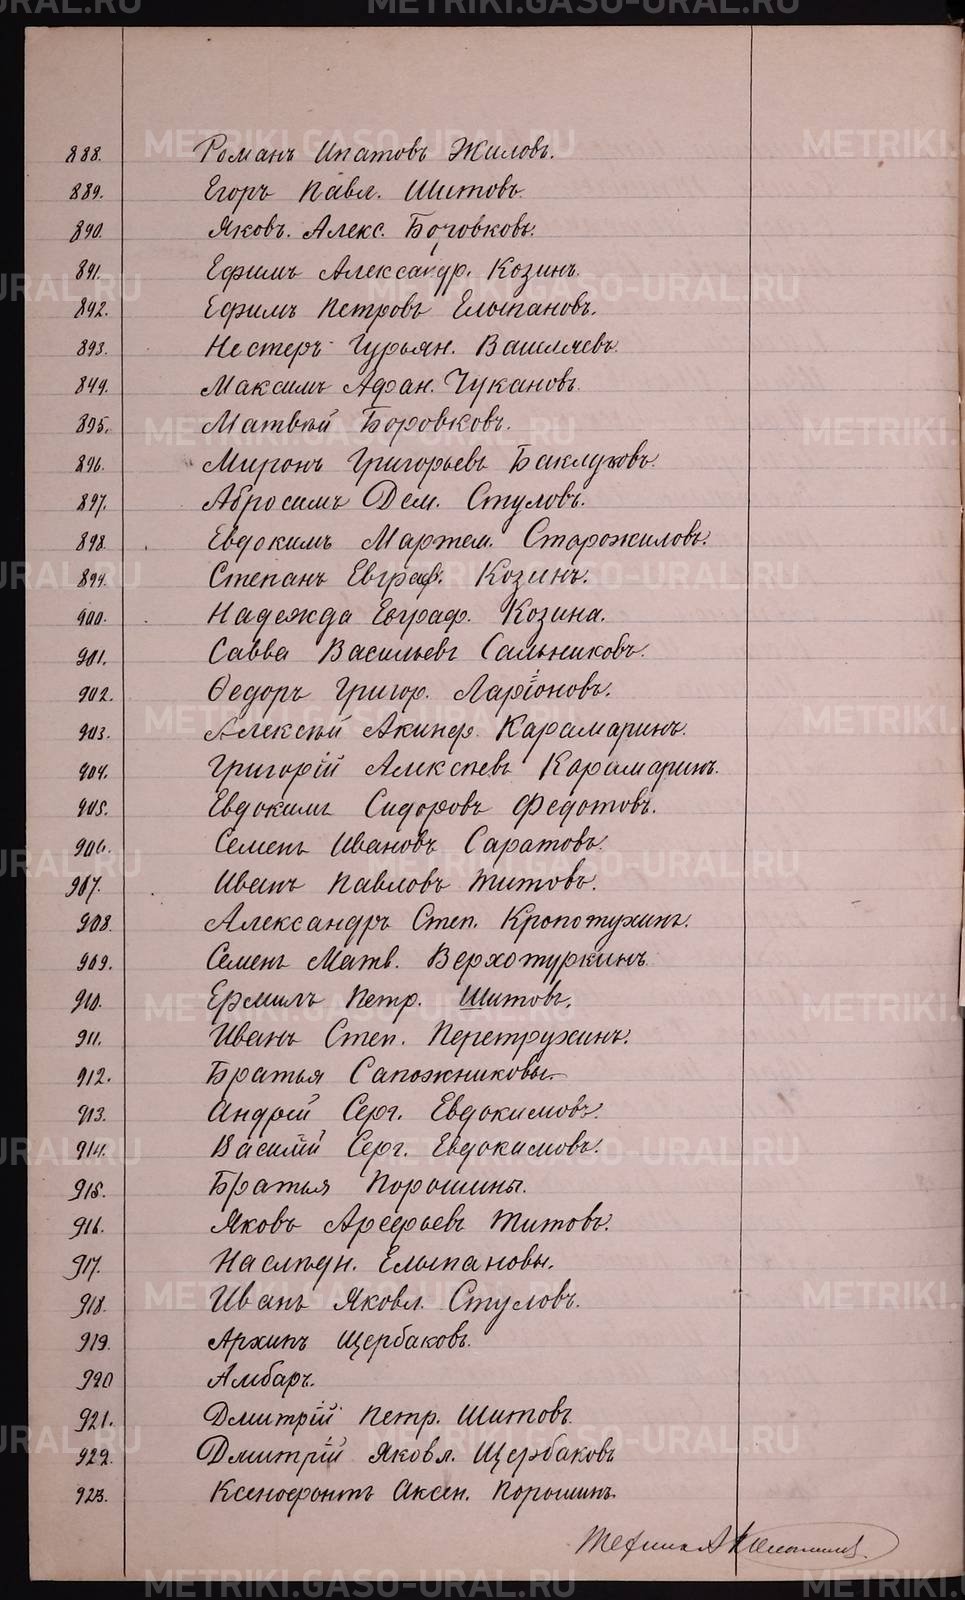 888. Романъ Ипатовъ Жиловъ.
889. Егоръ Павл. Шитовъ.
890. Яковъ. Алекс. Боровковъ.
891. Ефимъ Александр. Козинъ.
892. Ефимъ Петровъ Елыпановъ.
893. Нестеръ Гурьян. Вашляевъ.
894. Максимъ Афан. Чукановъ.
895. Матвѣй Боровковъ.
896. Миронъ Григорьевъ Баклуховъ.
897. Абросимъ Дем. Стуловъ.
898. Евдокимъ Мартем. Старожиловъ.
899. Степанъ Евграф. Козинъ.
900. Надежда Евграф. Козина.
901. Савва Васильевъ Сальниковъ.
902. Ѳедоръ Григор. Ларіоновъ.
903. Алексѣй Акинф. Карамаринъ.
904. Григорій Алексѣевъ Карамаринъ.
905. Евдокимъ Сидоровъ Федотовъ.
906. Семенъ Ивановъ Саратовъ.
907. Иванъ Павловъ Титовъ.
908. Александръ Степ. Кропотухинъ.
909. Семенъ Матв. Верхотуркинъ.
910. Ермилъ Петр. Шитовъ.
911. Иванъ Степ. Перетрухинъ.
912. Братья Сапожниковы.
913. Андрей Серг. Евдокимовъ.
914. Василій Серг. Евдокимовъ.
915. Братья Порошины.
916. Яковъ Арефьевъ Титовъ.
917. Наслѣдн. Елыпановы.
918. Иванъ Яковл. Стуловъ.
919. Архипъ Щербаковъ.
920 Амбаръ.
921. Дмитрій Петр. Шитовъ.
922. Дмитрій Яковл. Щербаковъ
923. Ксенофонтъ Аксен. Порошинъ.
METRIKI.GASO-URAL.RU